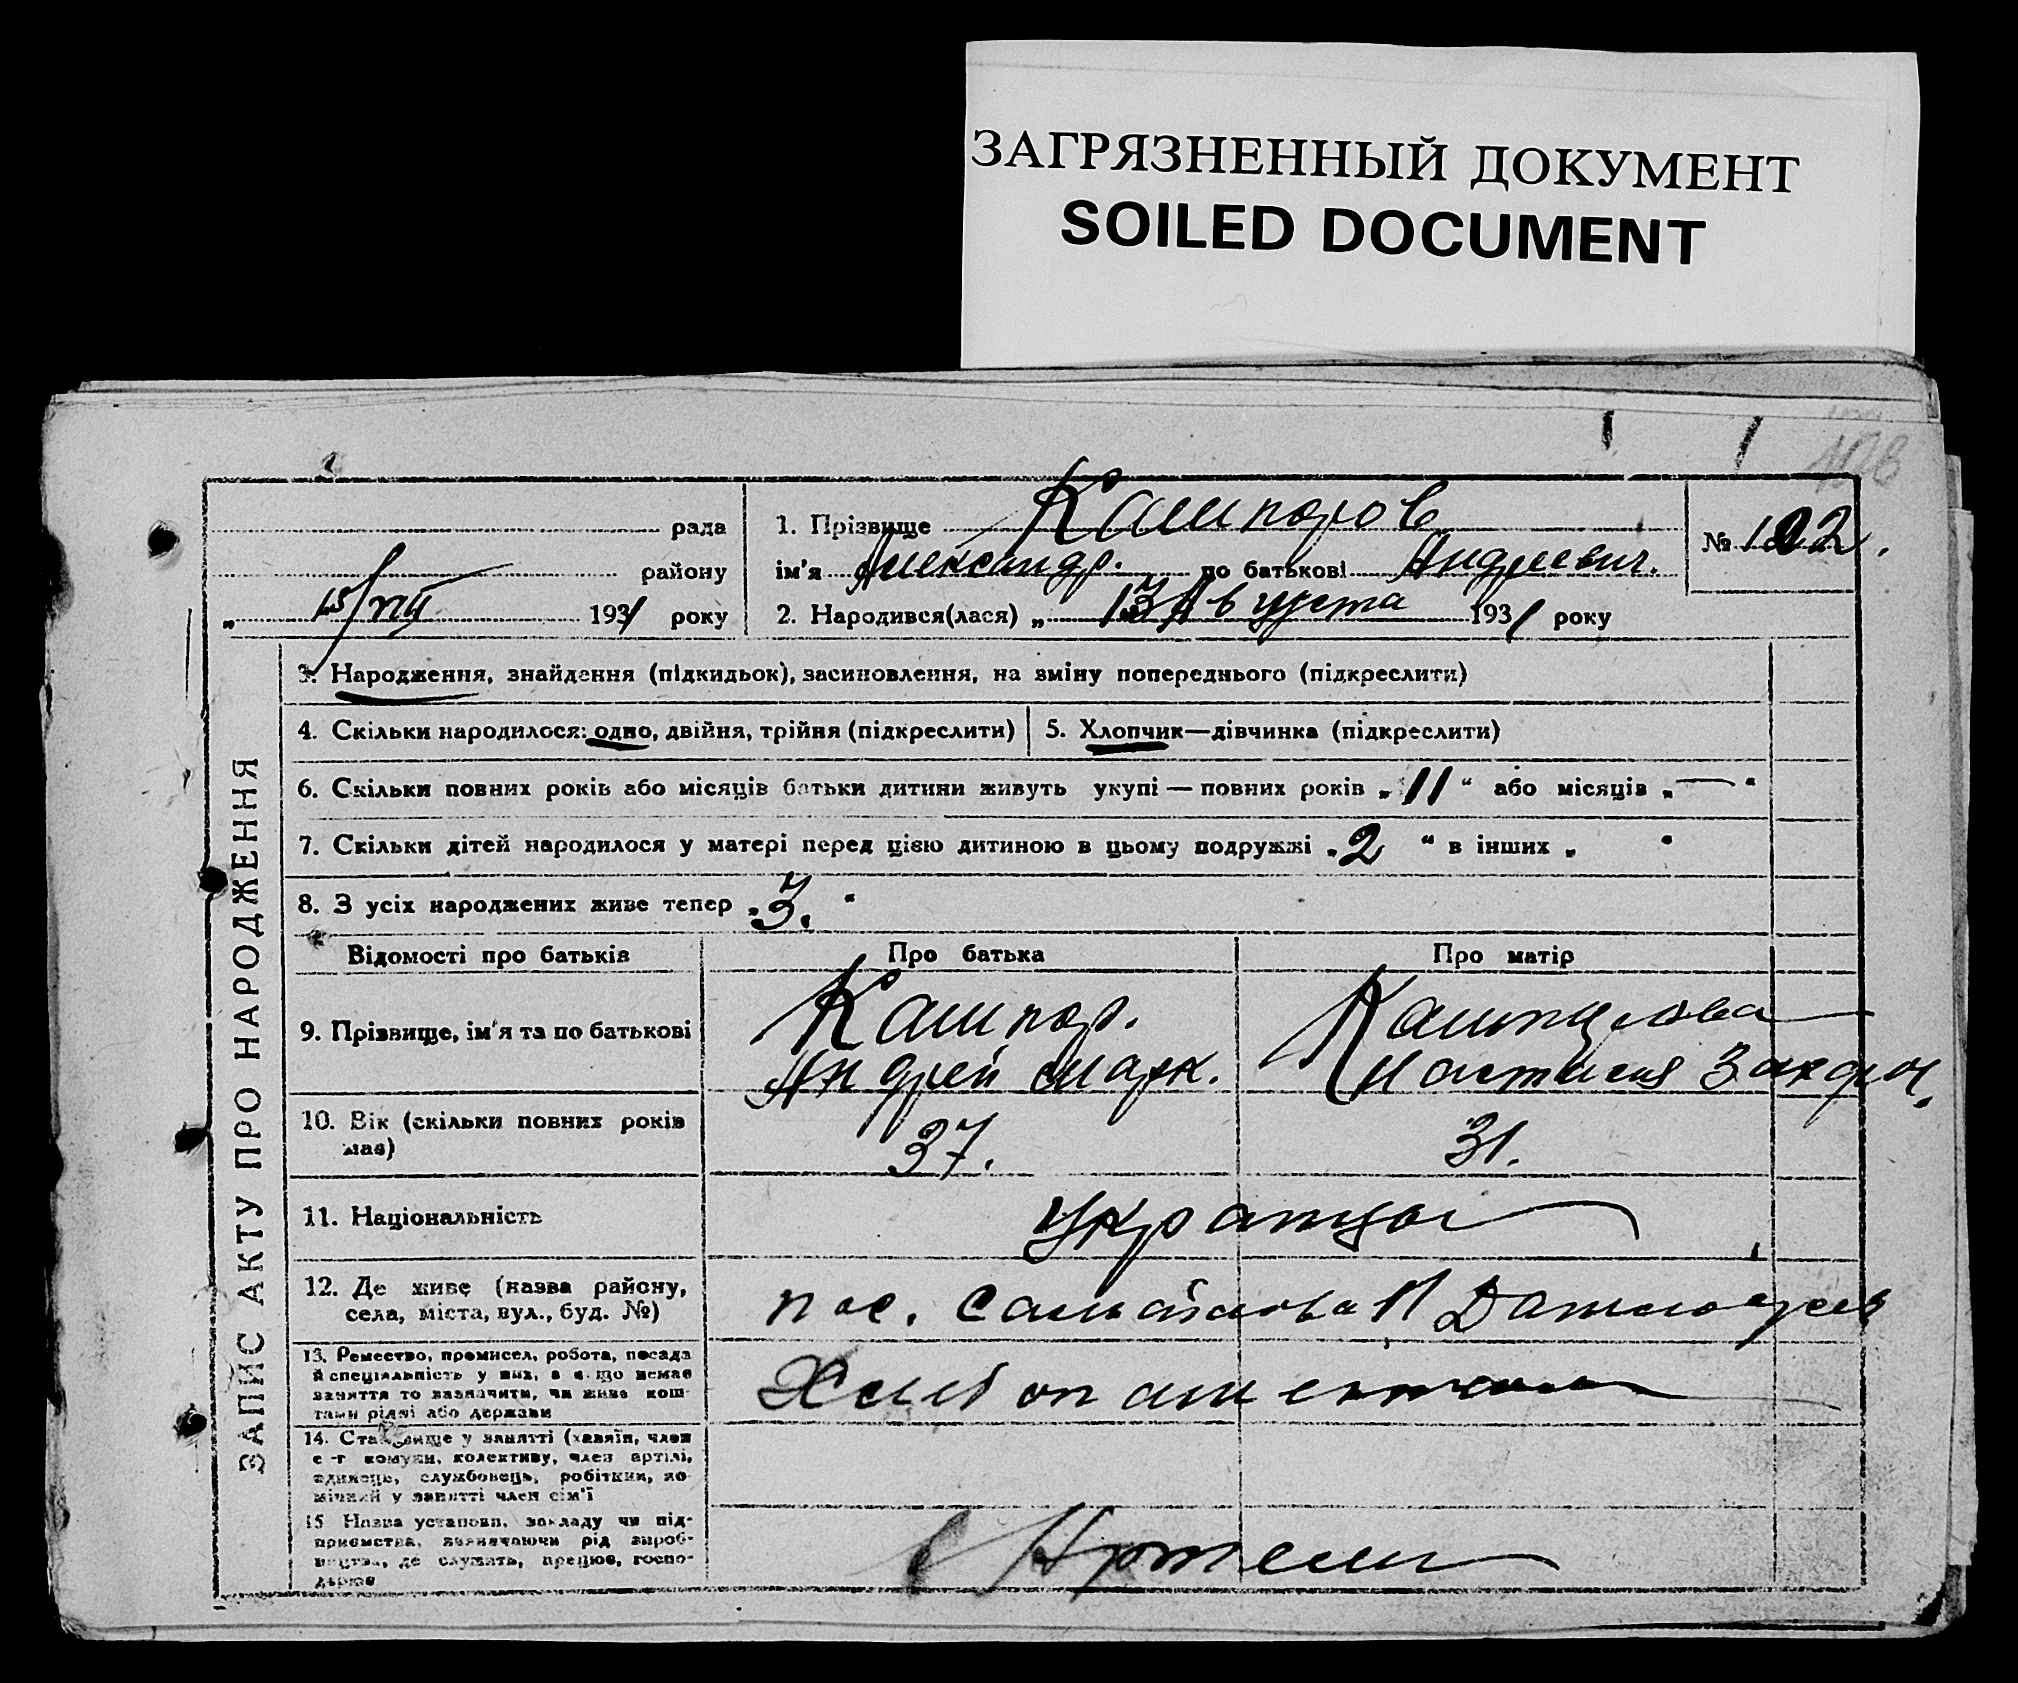 ЗАГРЯЗНЕННЫЙ ДОКУМЕНТ
SOILED DOCUMENT
ЗАПИС АКТУ ПРО НАРОДЖЕННЯ
рада
району
„ 15/VIII 1931 року
1. Прізвище Кашпоров
ім'я Александр. по батькові Андреевич.
№ 122.
2. Народився(лася) „ 13 Августа 1931 року
3. Народження, знайдення (підкидьок), засиновлення, на зміну попереднього (підкреслити)
4. Скільки народилося: одно, двійня, трійня (підкреслити)
5. Хлопчик—дівчинка (підкреслити)
6. Скільки повних років або місяців батьки дитини живуть укупі — повних років „ 11 “ або місяців „ — “
7. Скільки дітей народилося у матері перед цією дитиною в цьому подружжі „ 2 “ в інших „ “
8. З усіх народжених живе тепер „ 3. “
Відомості про батьків Про батька Про матір
9. Прізвище, ім'я та по батькові
Кашпор.
Андрей Марк.
Настасия Захар
10. Вік (скільки повних років має)
37. 31.
11. Національність
12. Де живе (назва району,
села, міста, вул., буд. №)
пос.
13. Ремество, промисел, робота, посада
й спеціяльність у них, а як що немає
заняття то зазначити, чи живе кош-
тами рідні або держави
Хлебопашен
14. Становище у занятті (хазяїн, член
с-г комуни, колективу, член артілі,
одинець, службовець, робітник, по-
мічний у занятті член сім'ї
15 Назва установи, закладу чи під-
приємства, зазначаючи рід вироб-
ництва, де служить, працює, госпо-
дарює
Артели